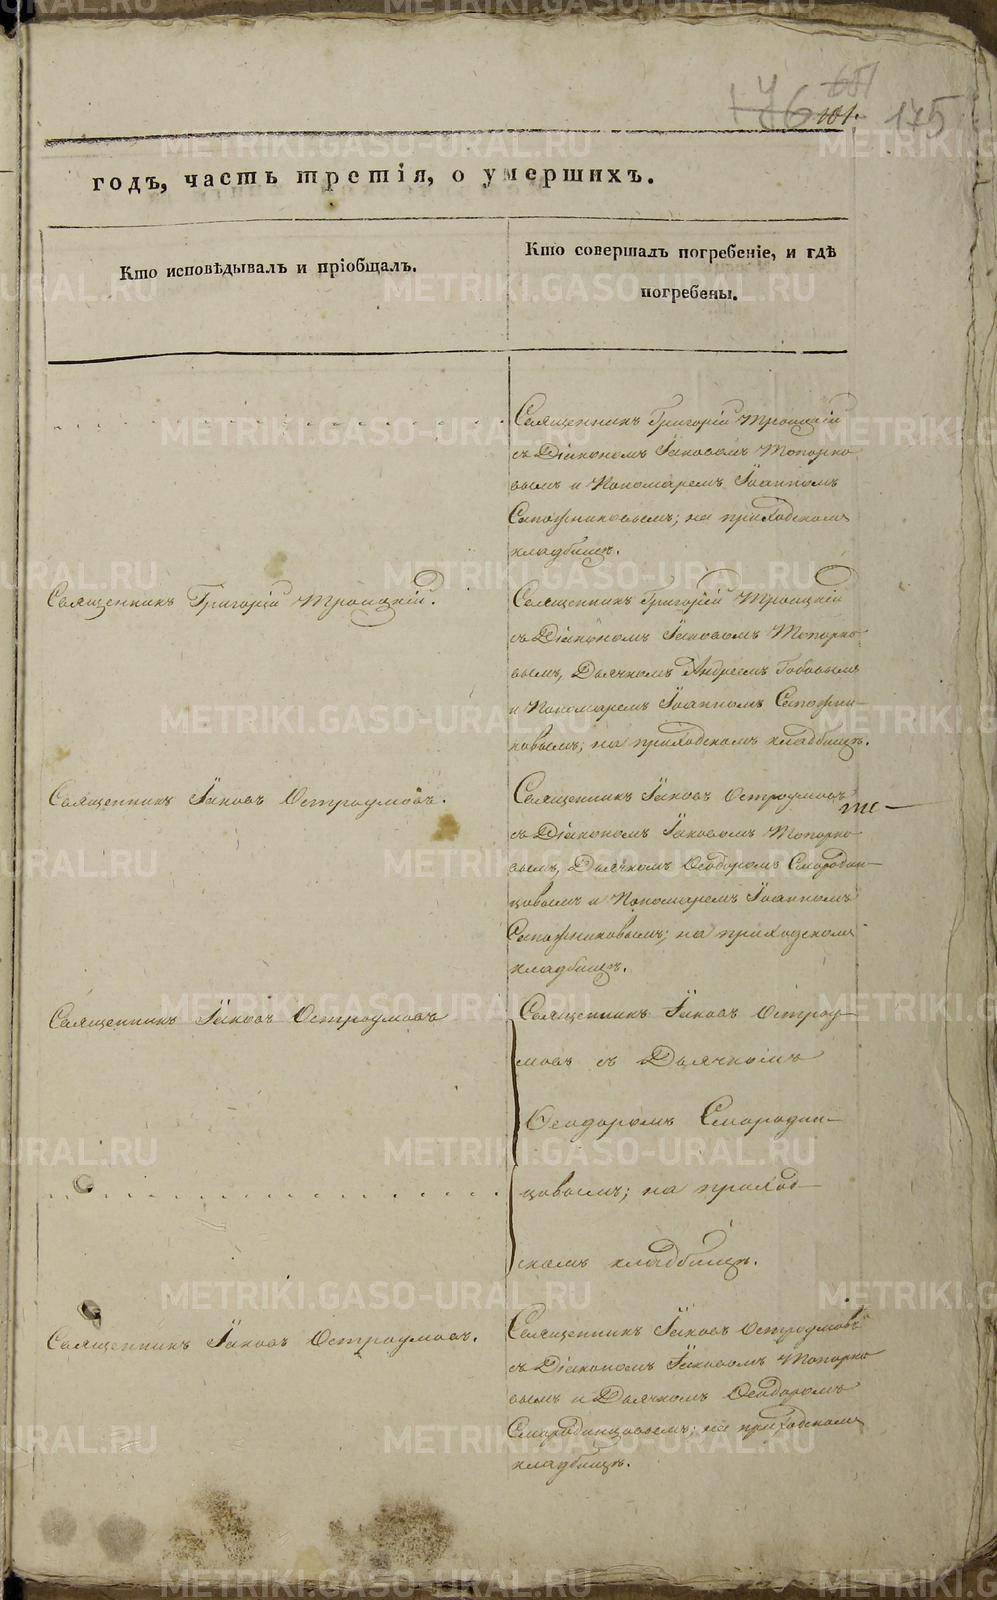 651
176
101.
175
годъ, часть третія, о умершихъ.
Кто исповѣдывалъ и пріобщалъ.
Кто совершалъ погребеніе, и гдѣ
погребены.
Священникъ Григорій Троицкій
съ Діакономъ Іаковомъ Топорко
вымъ и Пономаремъ Іоанномъ
Сапожниковымъ; на приходскомъ
кладбищѣ.
Священникъ Григорій Троицкій.
Священникъ Григорій Троицкій
съ Діакономъ Іаковомъ Топорко
вымъ, Дьячкомъ Андреемъ
и Пономаремъ Іоанномъ Сапожни-
ковымъ; на приходскомъ кладбищѣ.
Священникъ Іаковъ Остроумовъ.
Священникъ Іаковъ Остроумовъ
съ Діакономъ Іаковомъ Топорко
вымъ, Дьячкомъ Ѳеодоромъ Смородин-
цовымъ и Пономаремъ Іоанномъ
Сапожниковымъ; на приходскомъ
кладбищѣ.
Священникъ Іаковъ Остроумовъ
Священникъ Іаковъ Остроу-
мовъ съ Дьячкомъ
Ѳеодоромъ Смородин-
цовымъ; на приход-
скомъ кладбищѣ.
Священникъ Іаковъ Остроумовъ.
Священникъ Іаковъ Остроумовъ
съ Діакономъ Іаковомъ Топорко
вымъ и Дьячкомъ Ѳеодоромъ
Смородинцовымъ; на приходскомъ
кладбищѣ.
METRIKI.GASO-URAL.RU